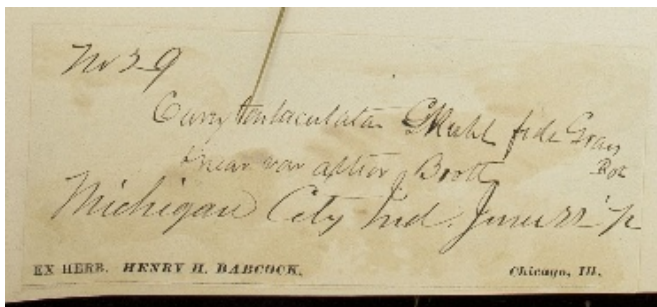 No 29
Carex tentaculata Muhl fide Gray
& near var altior Boott
Bot
Michigan City Ind. June
EX HERB. HENRY H. BABCOCK. Chicago, Ill.